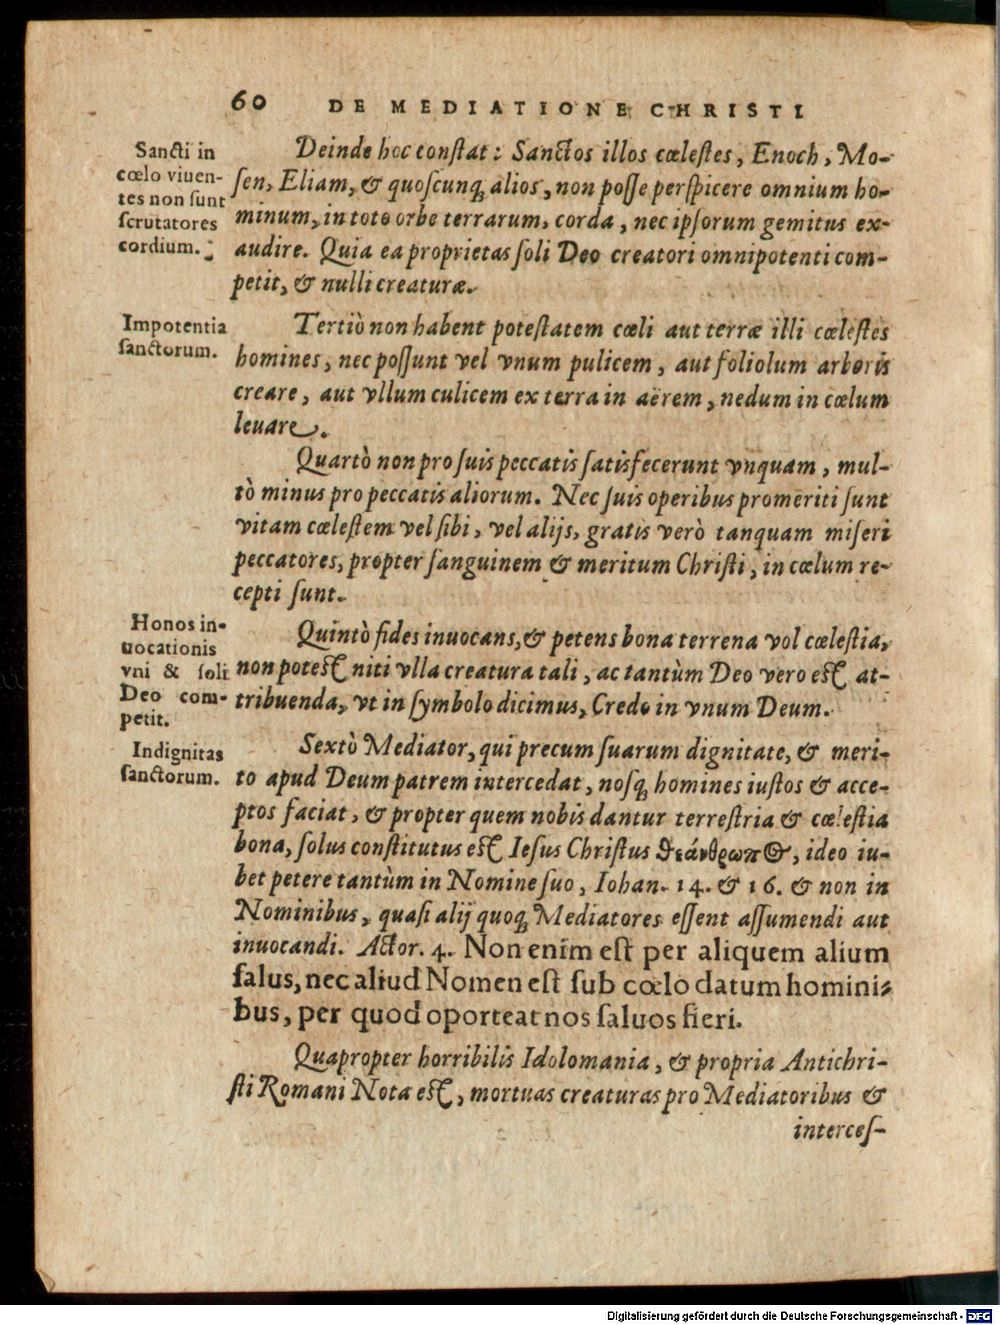 60 DE MEDIATIONE CHRISTI
Sancti in
cœlo viuen-
tes non sunt
scrutatores
cordium.
Deinde hoc constat: Sanctos illos cœlestes, Enoch, Mo-
sen, Eliam, & quoscunq; alios, non posse perspicere omnium ho-
minum, in toto orbe terrarum, corda, nec ipsorum gemitus ex-
audire. Quia ea proprietas soli Deo creatori omnipotenti com-
petit, & nulli creaturæ.
Impotentia
sanctorum.
Tertiò non habent potestatem cœli aut terræ illi cœlestes
homines, nec possunt vel vnum pulicem, aut foliolum arboris
creare, aut vllum culicem ex terra in aërem, nedum in cœlum
leuare.
Quartò non pro suis peccatis satisfecerunt vnquam, mul-
tò minus pro peccatis aliorum. Nec suis operibus promeriti sunt
vitam cœlestem vel sibi, vel alijs, gratis verò tanquam miseri
peccatores, propter sanguinem & meritum Christi, in cœlum re-
cepti sunt.
Honos in-
uocationis
vni & soli
Deo com-
petit.
Quintò fides inuocans, & petens bona terrena vol cœlestia,
non potest niti vlla creatura tali, ac tantùm Deo vero est at-
tribuenda, vt in symbolo dicimus, Credo in vnum Deum.
Indignitas
sanctorum.
Sextò Mediator, qui precum suarum dignitate, & meri-
to apud Deum patrem intercedat, nosq; homines iustos & acce-
ptos faciat, & propter quem nobis dantur terrestria & cœlestia
bona, solus constitutus est Iesus Christus θεάνθρωπος, ideo iu-
bet petere tantùm in Nomine suo, Iohan. 14. & 16. & non in
Nominibus, quasi alij quoq; Mediatores essent assumendi aut
inuocandi. Actor. 4. Non enim est per aliquem alium
salus, nec aliud Nomen est sub cœlo datum homini-
bus, per quod oporteat nos saluos fieri.
Quapropter horribilis Idolomania, & propria Antichri-
sti Romani Nota est, mortuas creaturas pro Mediatoribus &
interces-
Digitalisierung gefördert durch die Deutsche Forschungsgemeinschaft - DFG